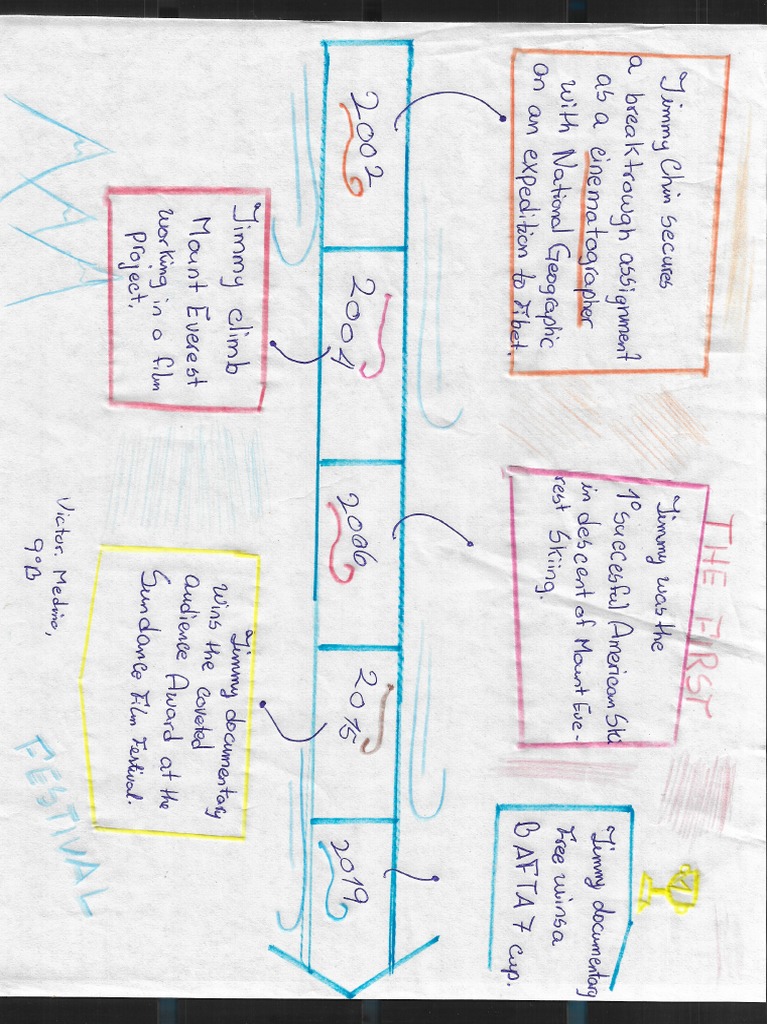 2002
2004
2006
2015
2019
Jimmy Chin secures
a breaktrough assignment
as a cinematographer
with National Geographic
on an expedition to Tibet.
Jimmy climb
Mount Everest
working in a film
project.
THE FIRST
Jimmy was the
1º succesful American Ski
in descent of Mount Eve-
rest Skiing.
Jimmy documentary
wins the coveted
audience Award at the
Sundance Film Festival.
FESTIVAL
Jimmy documentary
Free wins a
BAFTA 7 cup.
Victor. Medina,
9ºB